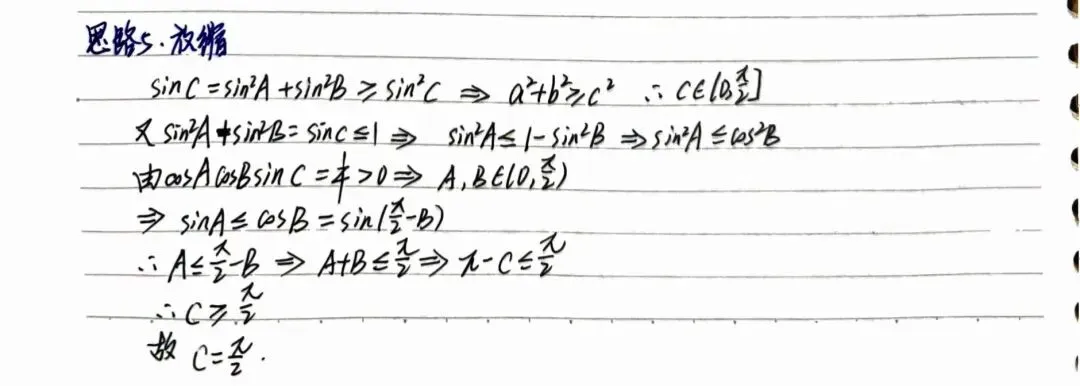 思路5.放缩
sinC=sin²A+sin²B≥sin²C ⇒ a²+b²≥c² ∴ C∈(0,π/2]
又 sin²A+sin²B=sinC≤1 ⇒ sin²A≤1-sin²B ⇒ sin²A≤cos²B
由cosAcosBsinC=1/4>0 ⇒ A,B∈(0,π/2)
⇒ sinA≤cosB=sin(π/2-B)
∴ A≤π/2-B ⇒ A+B≤π/2 ⇒ π-C≤π/2
∴ C≥π/2
故 C=π/2.